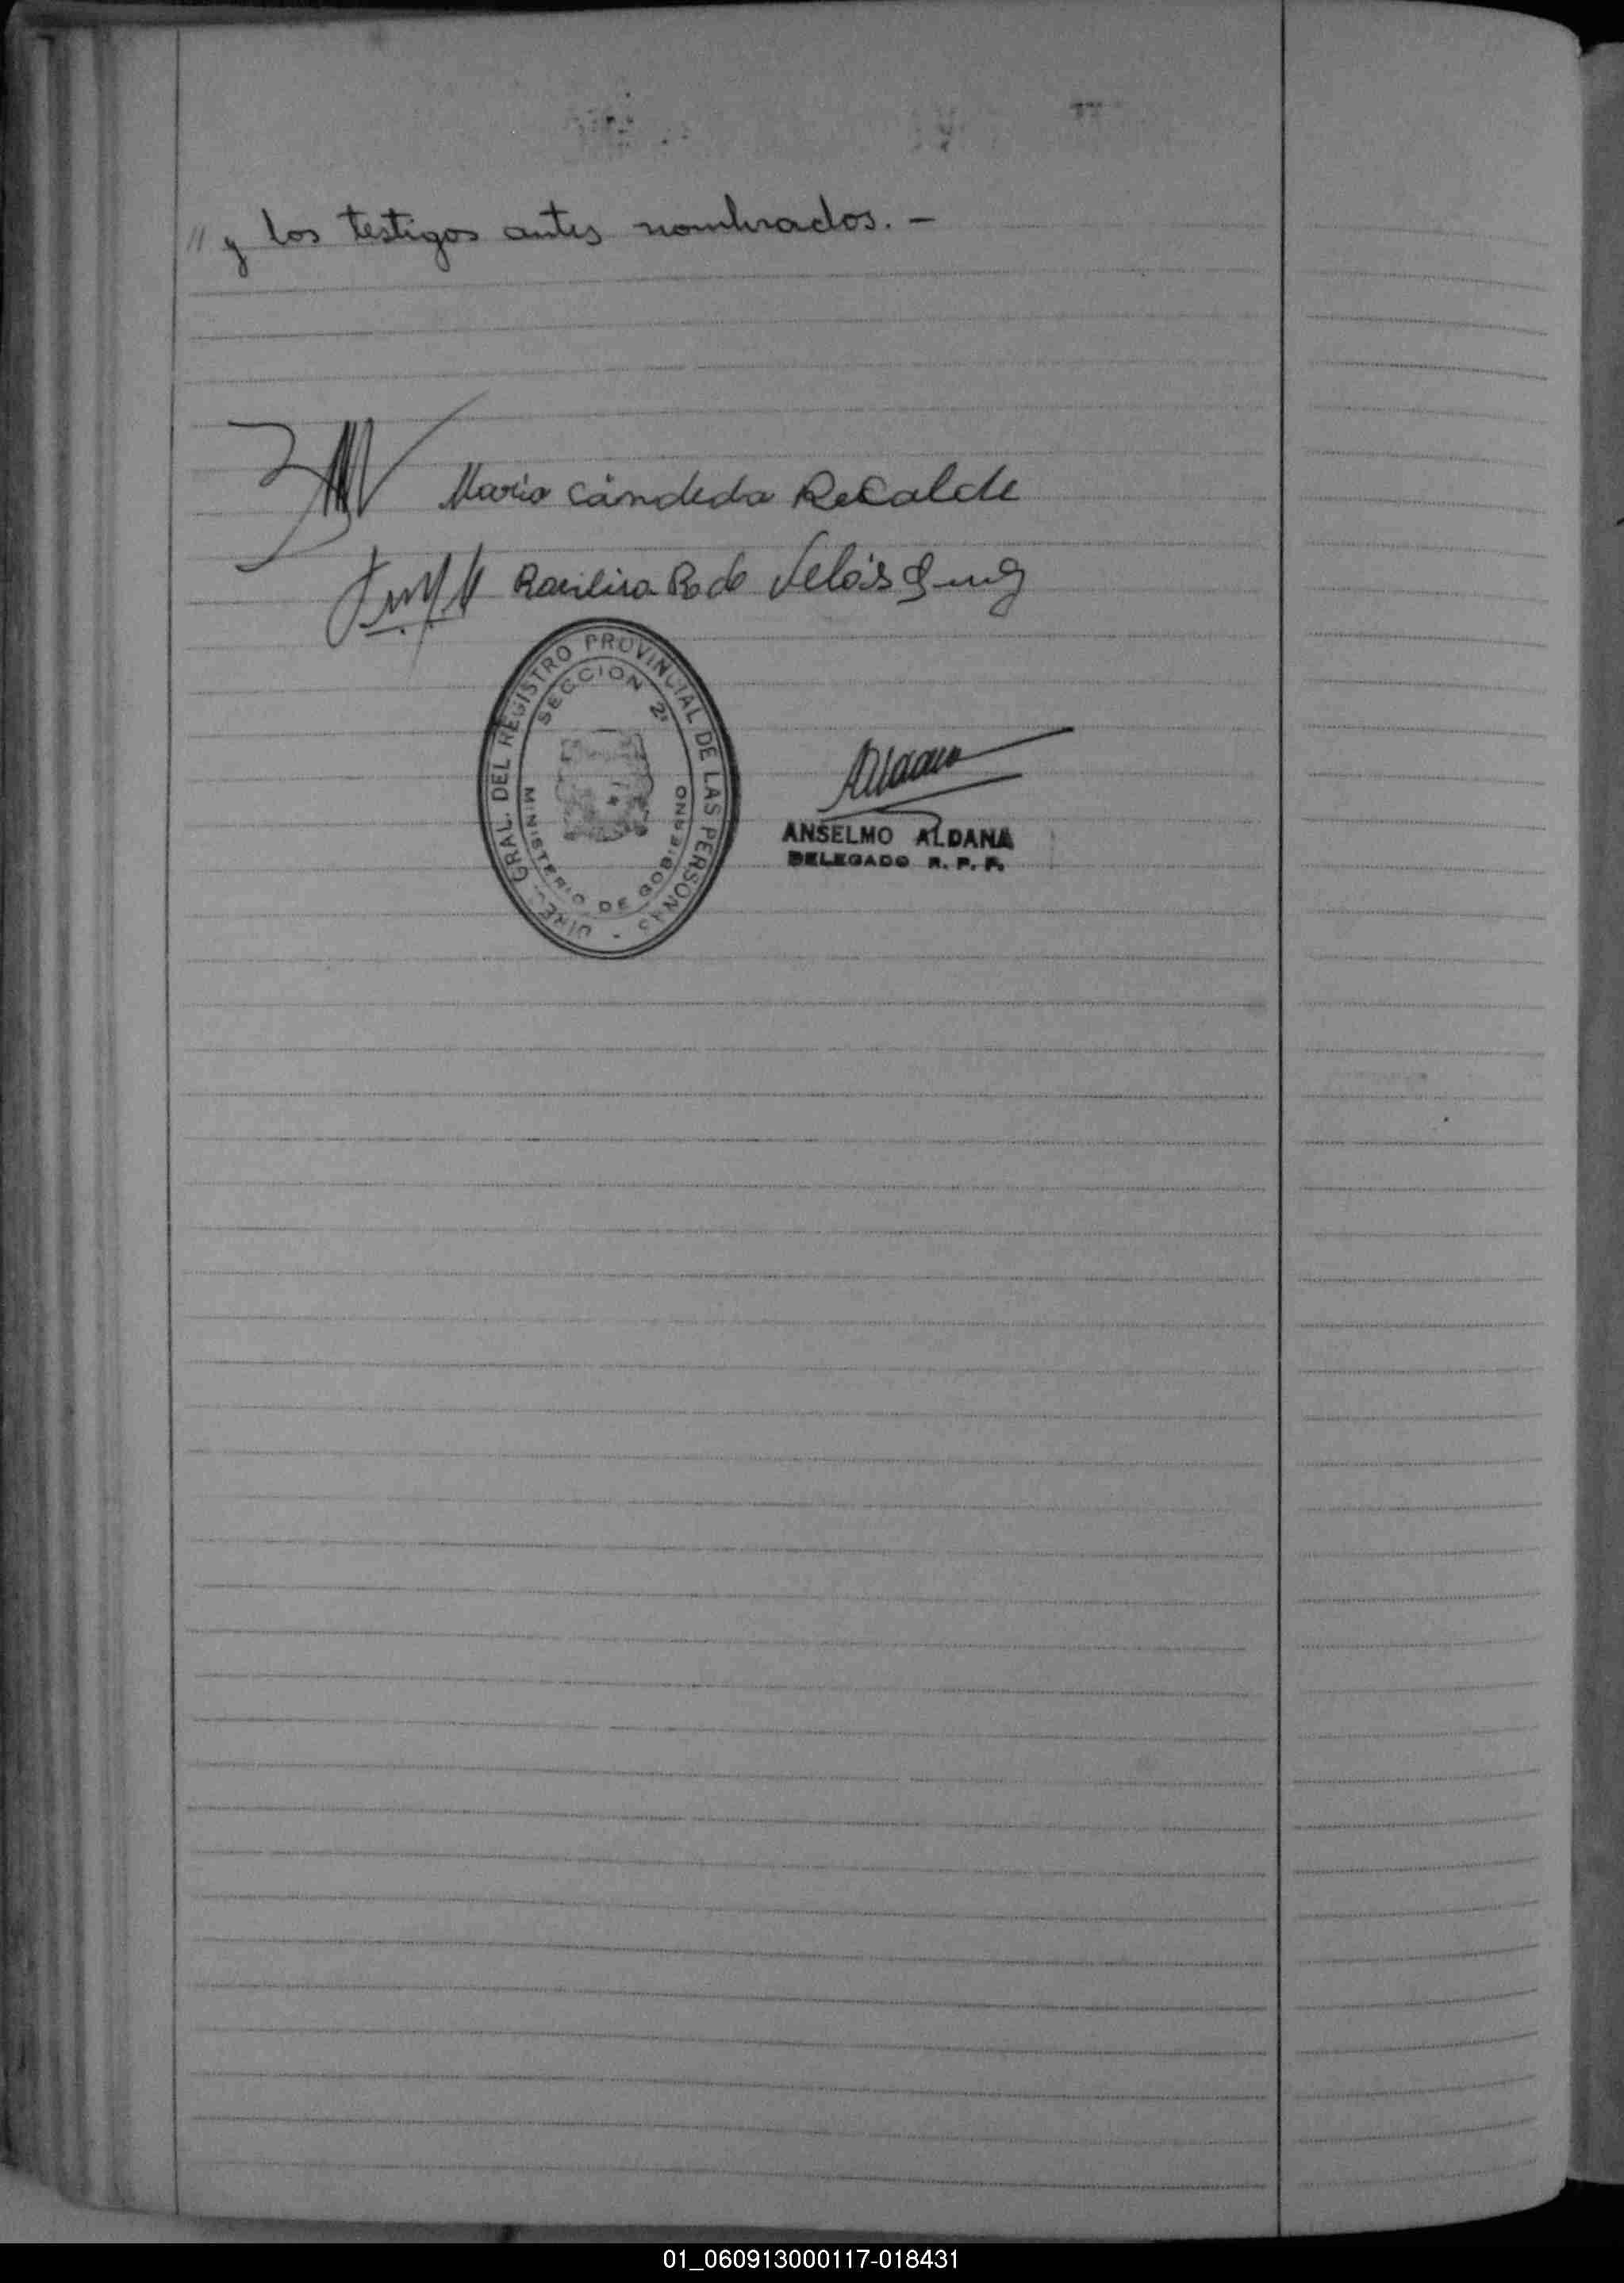 " y los testigos antes nombrados. -
Maria Cándeda Recalde
R. de Velásquez
DIREC. GRAL. DEL REGISTRO PROVINCIAL DE LAS PERSONAS -
SECCION 2ª
MINISTERIO DE GOBIERNO
ANSELMO ALDANA
DELEGADO R. P. P.
01_060913000117-018431